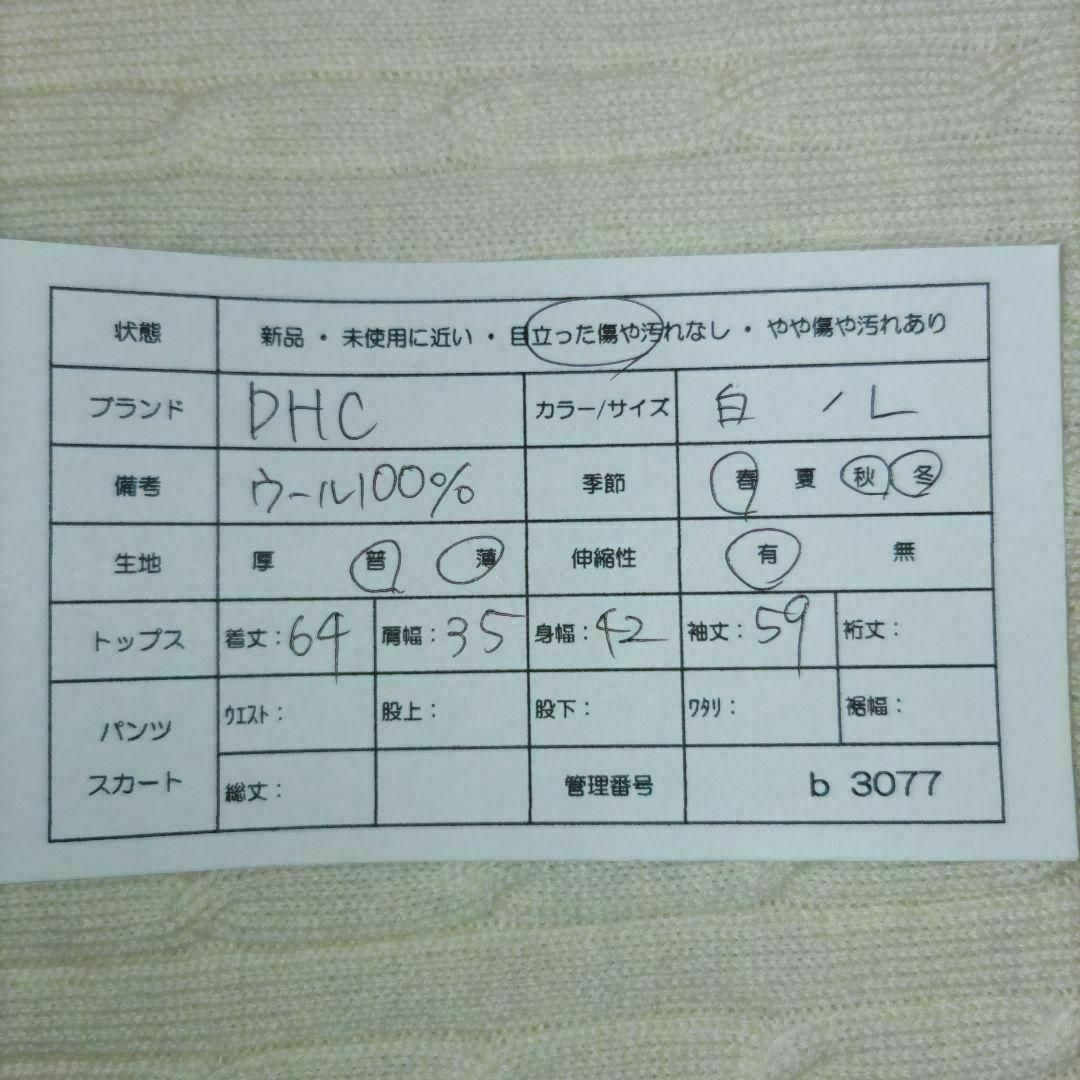 状態 新品 ・ 未使用に近い ・ 目立った傷や汚れなし ・ やや傷や汚れあり
ブランド DHC カラー/サイズ 白 / L
備考 ウール100% 季節 春 夏 秋 冬
生地 厚 普 薄 伸縮性 有 無
トップス 着丈：64 肩幅：35 身幅：42 袖丈：59 裄丈：
パンツ スカート ｳｴｽﾄ： 股上： 股下： ﾜﾀﾘ： 裾幅：
総丈： 管理番号 b 3077